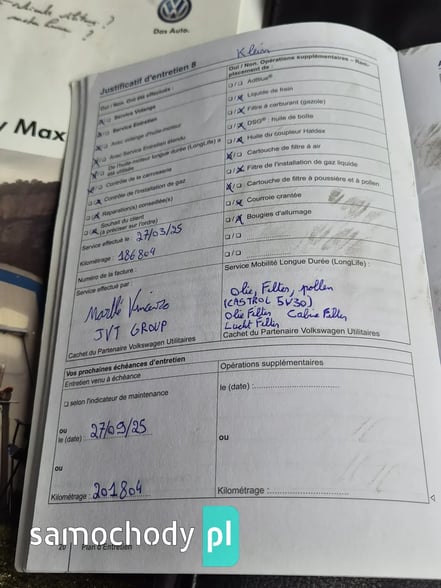 Das Auto.
y Max
Klein
Justificatif d'entretien 8
Oui / Non. Ont été effectués :
Service Vidange
Service Entretien
Avec vidange d'huile moteur
Avec Service Entretien étendu
De l'huile moteur longue durée (LongLife) a été utilisée
Contrôle de la carrosserie
Contrôle de l'installation de gaz
Réparation(s) conseillée(s)
Souhait du client
(à préciser sur l'ordre)
Service effectué le : 27/03/25
Kilométrage : 186804
Numéro de la facture :
Service effectué par :
JVT GROUP
Cachet du Partenaire Volkswagen Utilitaires
Oui / Non. Opérations supplémentaires – Remplacement de :
AdBlue®
Liquide de frein
Filtre à carburant (gazole)
DSG® : huile de boîte
Huile du coupleur Haldex
Cartouche de filtre à air
Filtre de l'installation de gaz liquide
Cartouche de filtre à poussière et à pollen
Courroie crantée
Bougies d'allumage
Service Mobilité Longue Durée (LongLife) :
Olie, Filter, pollen
(CASTROL 5W30)
Olie Filter Cabine Filter
Lucht Filter
Cachet du Partenaire Volkswagen Utilitaires
Vos prochaines échéances d'entretien
Entretien venu à échéance
selon l'indicateur de maintenance
ou
le (date) : 27/09/25
ou
Kilométrage : 201804
Opérations supplémentaires
le (date) :
ou
Kilométrage :
20 Plan d'Entretien
samochody pl